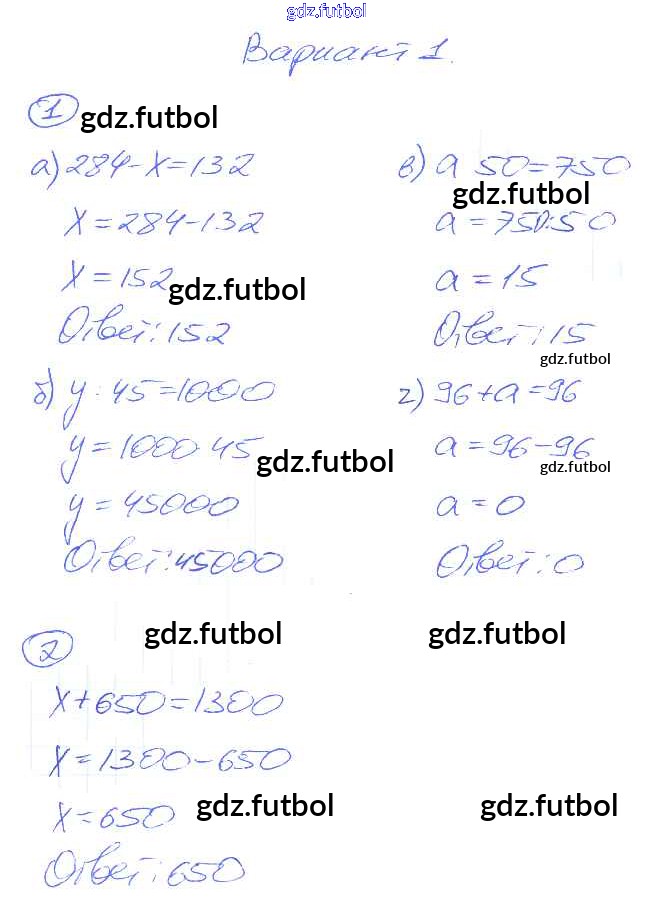 gdz.futbol
Вариант 1.
1 gdz.futbol
а) 284-х=132
х=284-132
х=152 gdz.futbol
Ответ: 152
б) у:45=1000
у=1000·45 gdz.futbol
у=45000
Ответ: 45000
в) а 50=750
gdz.futbol
а=750:50
а=15
Ответ: 15
gdz.futbol
г) 96+а=96
а=96-96
gdz.futbol
а=0
Ответ: 0
2 gdz.futbol gdz.futbol
х+650=1300
х=1300-650
х=650 gdz.futbol gdz.futbol
Ответ: 650